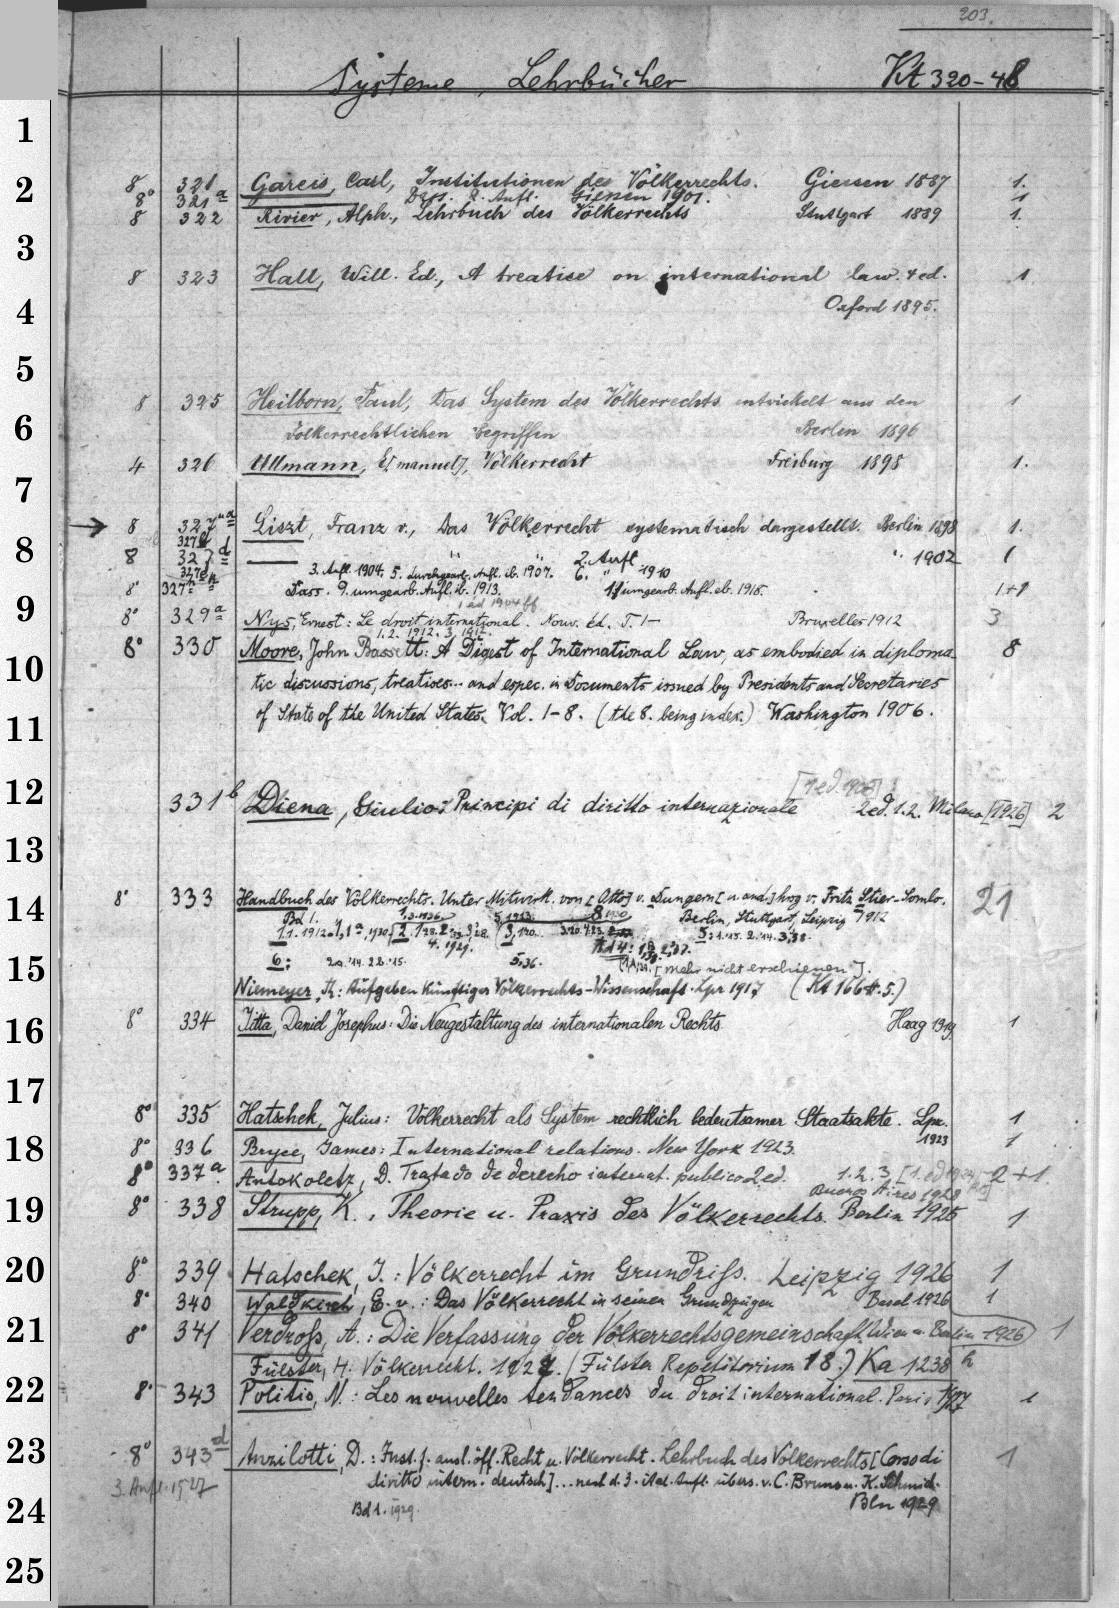 203.
Systeme, Lehrbücher Kt 320-48
1
2
3
4
5
6
7
8
9
10
11
12
13
14
15
16
17
18
19
20
21
22
23
24
25
8 321 Gareis, Carl, Institutionen des Völkerrechts. Giessen 1887 1.
8° 321a Dass. 2. Aufl. Giessen 1901. 1
8 322 Rivier, Alph., Lehrbuch des Völkerrechts Stuttgart 1889 1.
8 323 Hall, Will. Ed., A treatise on international law. 4 ed. 1
Oxford 1895.
8 325 Heilborn, Paul, Das System des Völkerrechts entwickelt aus den 1
völkerrechtlichen Begriffen Berlin 1896
4 326 Ullmann, E[manuel], Völkerrecht Freiburg 1898 1.
8 327a Liszt, Franz v., Das Völkerrecht systematisch dargestellt. Berlin 1898 1.
8 327d — " " 2. Aufl. " 1902 1
3. Aufl. 1904. 5. durchgearb. Aufl. ib. 1907. 6. " 1910
8° 327 Dass. 9. umgearb. Aufl. ib. 1913. 11 umgearb. Aufl. ib. 1918. 1+1
1 éd 1904 ff
8° 329a Nys, Ernest: Le droit international. Nouv. éd. T. 1- Bruxelles 1912 3
1. 2. 1912. 3. 1912.
8° 330 Moore, John Bassett: A Digest of International Law, as embodied in diploma- 8
tic discussions, treatises... and espec. in Documents issued by Presidents and Secretaries
of State of the United States. Vol. 1-8. (the 8. being index.) Washington 1906.
[1 ed. 1908]
331b Diena, Giulio: Principi di diritto internazionale 2 ed. 1.2. Milano [1926] 2
8° 333 Handbuch des Völkerrechts. Unter Mitwirk. von [Otto] v. Dungern [u. and.] hrsg v. Fritz Stier-Somlo. 21
Bd 1. Berlin, Stuttgart, Leipzig 1912
6: 2a.'14. 2b.'15. 5,36.
[mehr nicht erschienen].
Niemeyer, Th.: Aufgaben künftiger Völkerrechts-Wissenschaft. Lpz 1917 (Kt 166 5.)
8° 334 Jitta, Daniel Josephus: Die Neugestaltung des internationalen Rechts Haag 1919 1
8° 335 Hatschek, Julius: Völkerrecht als System rechtlich bedeutsamer Staatsakte. Lpz. 1
1923
8° 336 Bryce, James: International relations. New York 1923. 1
8° 337a. Antokoletz, D. Tratado de derecho internat. publico 2 ed. 1.2.3 2+1.
Buenos Aires 1928
8° 338 Strupp, K., Theorie u. Praxis des Völkerrechts. Berlin 1925 1
8° 339 Hatschek, J.: Völkerrecht im Grundriss. Leipzig 1926 1
8° 340 Waldkirch, E. v.: Das Völkerrecht in seinen Grundzügen Basel 1926 1
8° 341 Verdross, A.: Die Verfassung der Völkerrechtsgemeinschaft. Wien u. Berlin 1926 1
Fülster, H. Völkerrecht. 1927. (Fülster Repetitorium 18.) Ka 1238 h
8° 343 Politis, N.: Les nouvelles tendances du droit international. Paris 1927 1
8° 343d Anzilotti, D.: Inst. f. ausl. öff. Recht u. Völkerrecht. Lehrbuch des Völkerrechts [Corso di 1
3. Aufl. 1927 diritto intern. deutsch] ... nach d. 3. ital. Aufl. übers. v. C. Bruns u. K. Schmid.
Bd 1. 1929. Bln 1929